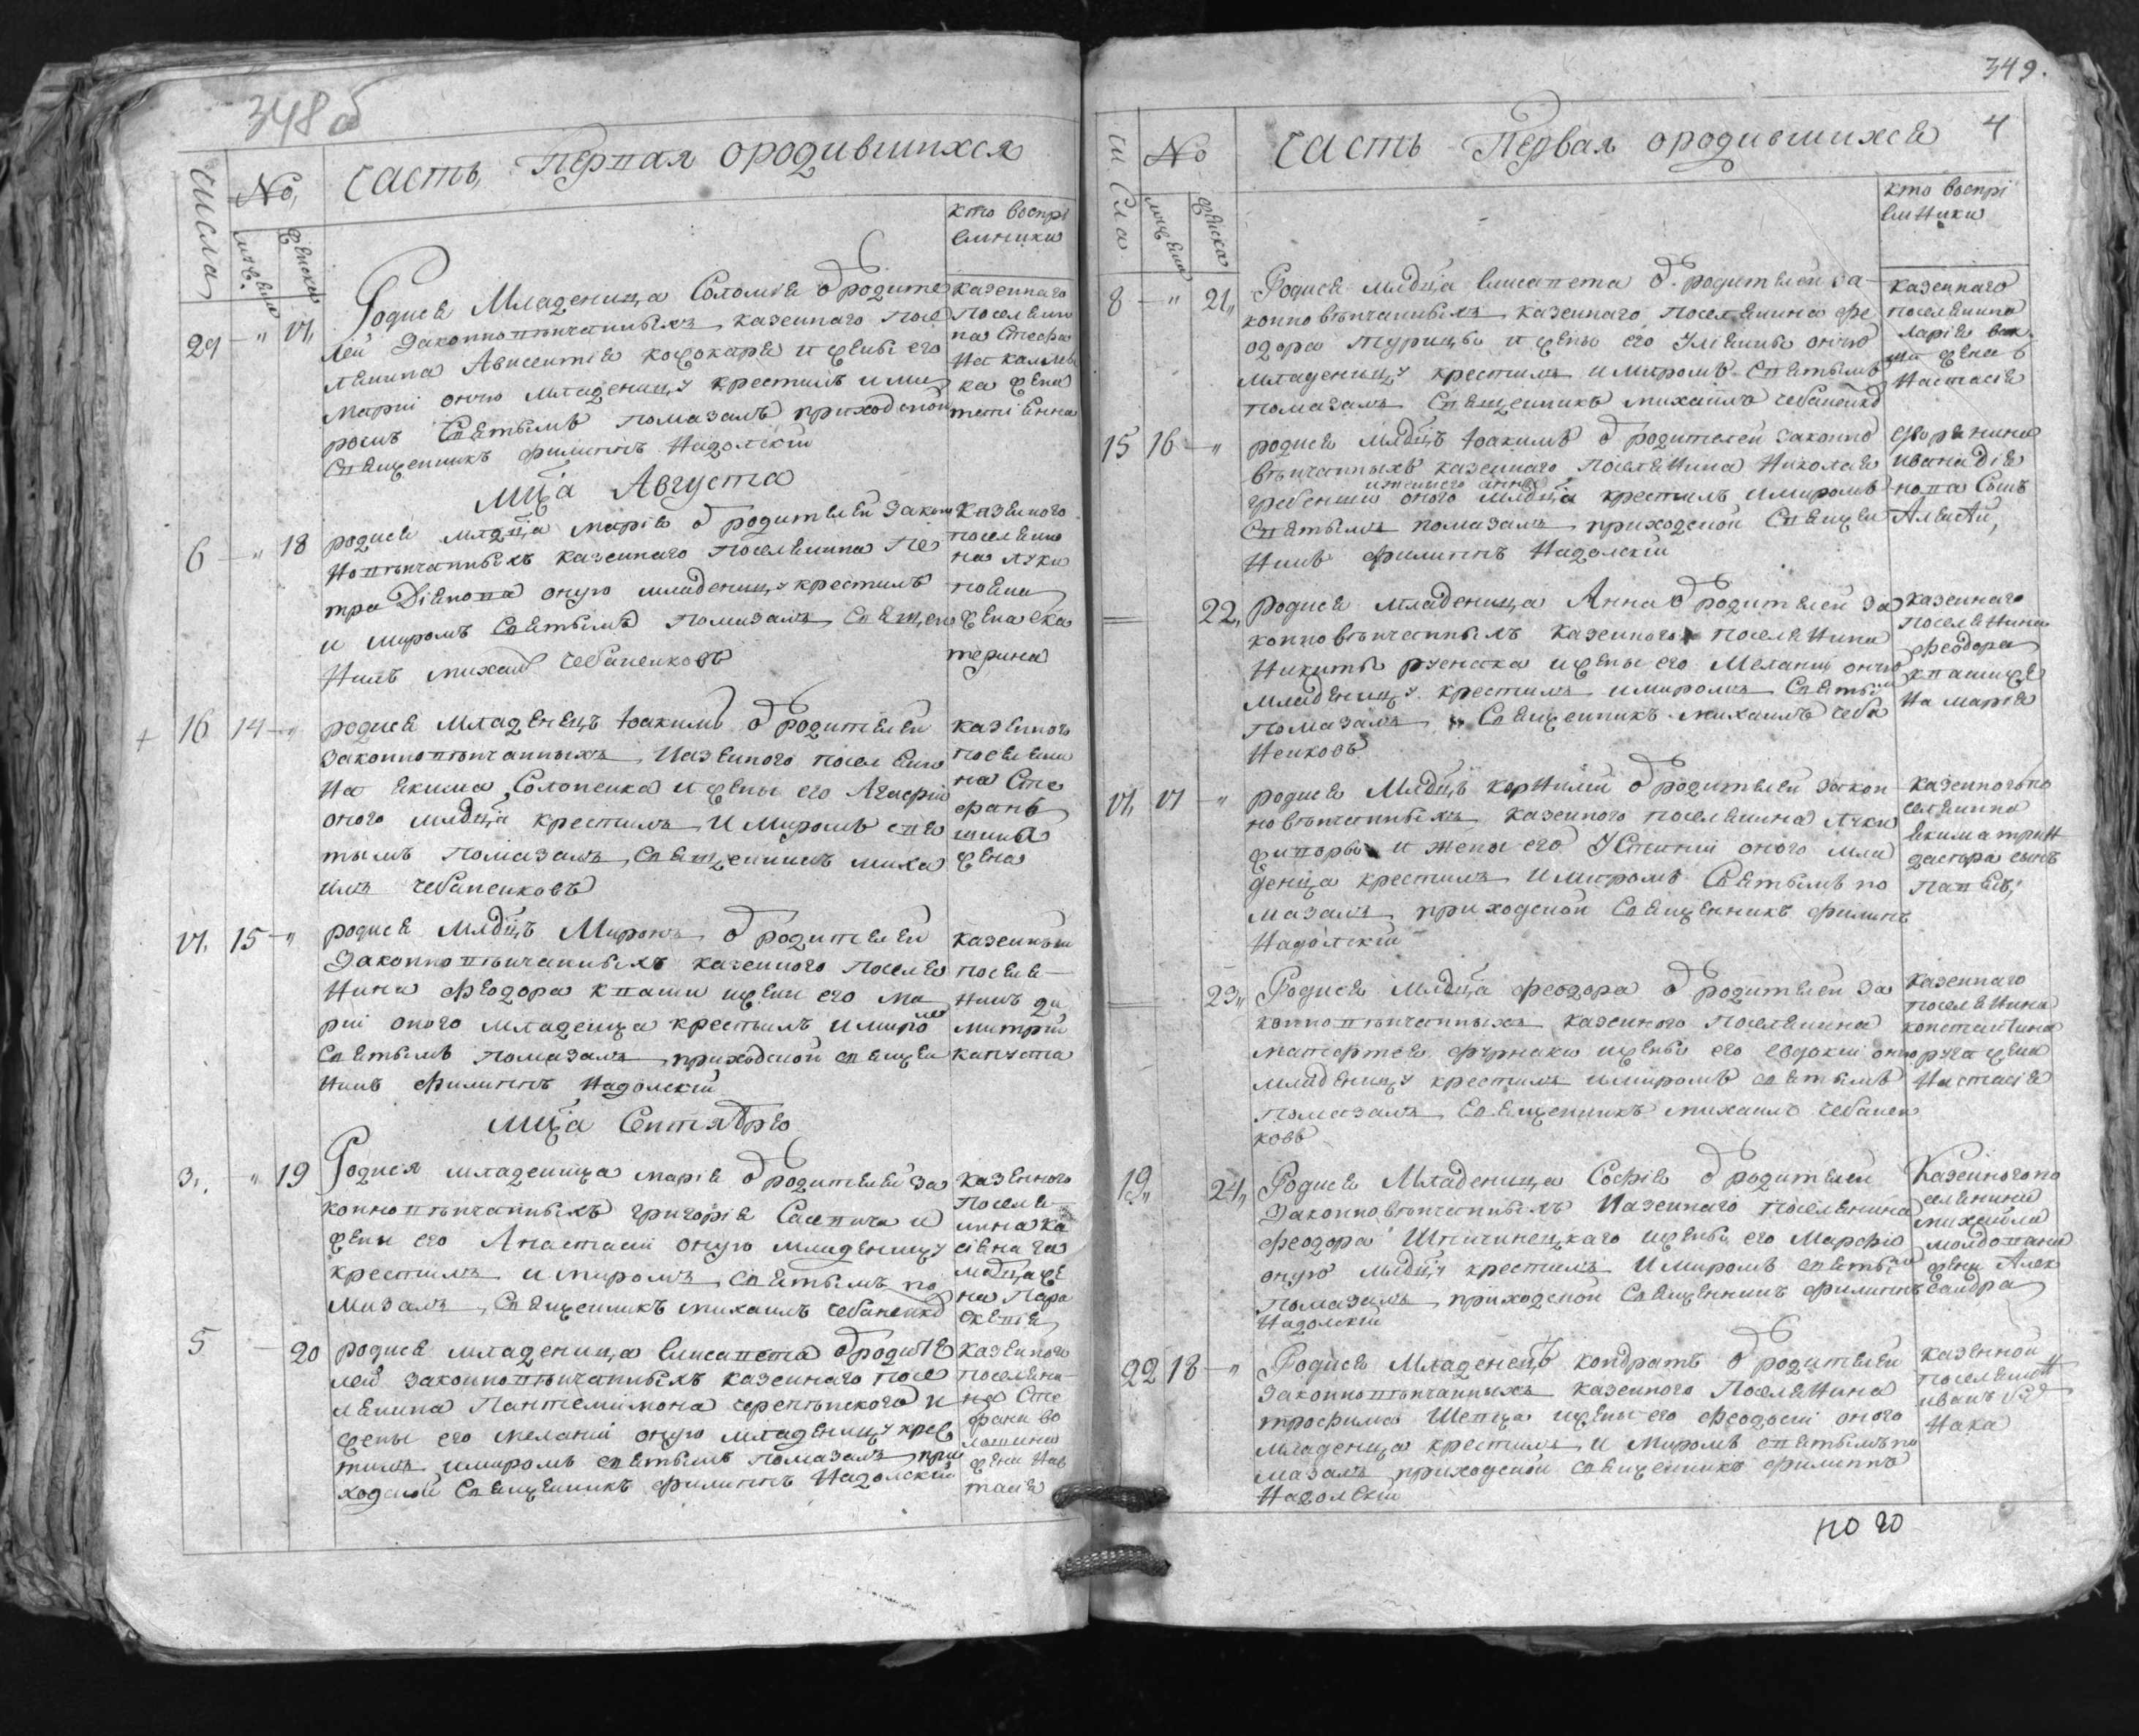 348 об
Числа
No,
муже.
женска
часть, Перпая ородившихся
кто воспрі
емники
29 — " 17,
Родися Младеница Соломія ѿ родите
лей Законнопѣнчанныхъ казеннаго посе
ленина Авксентія кожокаря и жены его
марпи оную младеницу крестилъ и ми
ромъ Святымъ помазалъ приходской
Священникъ филиппъ Надолскій
казеннаго
поселени
на Стефа
на
ка жена
Мца Августа
6 — " 18
родися млдца марія ѿ родителей закон
нопѣнчанныхъ казеннаго поселенина Пе
тра Діянова оную младеницу крестилъ
и миромъ Святымъ помазалъ Священ
никъ михаил чебаненковъ
казенного
поселени
на луки
жена ека
терина
+ 16 14 — "
родися младенецъ іоакимъ ѿ родителей
законнопѣнчанныхъ казенного поселени
на якима Солопенка и жены его Агафіи
оного млдца крестилъ и миромъ свя
тымъ помазалъ Священникъ миха
илъ чебаненковъ
казенного
поселени
на Сте
фана
жена
17, 15 — "
родися млдцъ Миронъ ѿ родителей
Законнопѣнчанныхъ казенного поселя
нина феодора кпаши и жени его ма
рпи оного младенца крестилъ и миромъ
святымъ помазалъ приходской священ
никъ филиппъ Надолскій
казенный
поселя—
нинъ ди
митрій
капуста
Мца Септября
3. — " 19
Родися младеница марія ѿ родителей за
коннопѣнчанныхъ григорія Савпича и
жены его Анастасіи оную младеницу
крестилъ и миромъ святымъ по
мазалъ Священникъ михаилъ чебаненко
казенного
поселя—
нина ка
на Пара
скевія
5 — 20
родися младеница елисапета ѿ родите
лей законнопѣнчанныхъ казеннаго посе
ленина Пантелимона и
жены его меланіи оную младеницу крес
тилъ и миромъ святымъ помазалъ при
ходской Священникъ филиппъ Надолскій
казенного
поселени—
на Сте
фана во
лошина
жена Нас
тасія
349.
4
Чи Сла
No
мужеска
женска
часть Первая ородившихся
кто воспрі
емники
8 — " 21,,
Родися млдца елисапета ѿ родителей за—
конновѣнчанныхъ казеннаго поселенина фе
одора турицы и жены его Уліяны оную
младеницу крестилъ и миромъ святымъ
помазалъ Священникъ михаилъ чебаненко
казеннаго
поселенина
ларіа
жена
Настасія
15 16 — "
родися млдцъ іоакимъ ѿ родителей законно
вѣнчанныхъ казеннаго поселянина Николая
гребенши и жены его анны оного млдца крестилъ и миромъ
Святымъ помазалъ приходской Священ
никъ филиппъ Надолскій
дворянина
ивана дія
нопа Сынъ
Алексѣй,
= 22,
родися младеница Анна ѿ родителей за
конновѣнчанныхъ казенного поселянина
Никиты руснака и жены его Меланіи оную
младеницу крестилъ и миромъ святым
помазалъ Священникъ михаилъ чеба
ненковъ
казеннаго
поселянина
феодора
кпаши же
на марія
17, 17 — "
родися млдцъ корнилій ѿ родителей закон
новѣнчанныхъ казенного поселенина луки
и жены его Устиніи оного мла
денца крестилъ и миромъ Святымъ по
мазалъ приходской Священникъ филипъ
Надолскій
казенного по
селянина
екима
сынъ
Павелъ,
= 23,,
Родися млдца феодора ѿ родителей за
коннопѣнчанныхъ казенного поселянина
матфея фурнаки и жены его евдокіи оную
младеницу крестилъ и миромъ святымъ
помазалъ Священникъ михаилъ чебанен
ковъ
казеннаго
поселянина
константина
руса жена
Настасія
19,, 24,,
Родися младеница Софія ѿ родителей
законновѣнчанныхъ казеннаго поселенина
феодора и жены его Марфи
оную млдцу крестилъ и миромъ святымъ
помазалъ приходской Священникъ филиппъ
Надолскій
Казенного по
селянина
михайла
молдована
жена Алек
сандра
22 18 — "
Родися Младенецъ кондратъ ѿ родителей
законнопѣнчанныхъ казенного поселянина
трофима Шепца и жены его феодосіи оного
младенца крестилъ и миромъ святымъ по
мазалъ приходской священникъ филиппъ
Надолскій
казенной
поселянин
иванъ